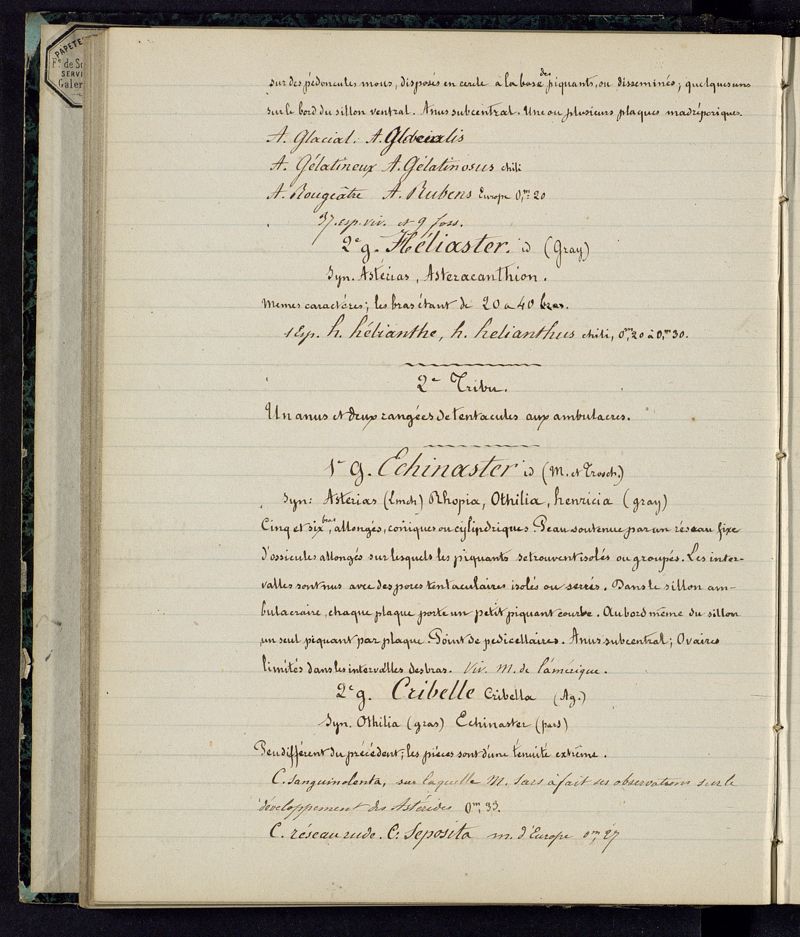 PAPETE
Fg de S
SERVI
Galer
sur des pédoncules mous, disposés en cercle à la base des piquants, ou disseminés; quelques uns
sur le bord du sillon ventral. Anus subcentral. Une ou plusieurs plaques madréporiques.
A. Glacial. A. Glacialis
A. Gélatineux A. Gélatinosus chili
A. Rougeâtre A. Rubens Europe 0,m20
37. esp. viv. et 9 foss.
2e g. Héliaster. id (Gray)
Syn. Astérias, Asteracanthion.
Memes caractères; les bras étant de 20 à 40 bras.
1 Esp. h. hélianthe, h. helianthus chili, 0m,20 à 0,m30.
2e Tribu.
Un anus et deux rangées de tentacules aux ambulacres.
1r g. Echinaster id (M. et Trosch.)
Syn: Asterias (Lmck) Rhopia, Othilia, henricia (gray)
Cinq et six bras, allongés, coniques ou cylindriques Peau soutenue par un réseau fixe
d'ossicules allongés sur lesquels les piquants se trouvent isolés ou groupés. Les inter-
valles sont nus avec des pores tentaculaires isolés ou serrés. Dans le sillon am-
bulacraire, chaque plaque porte un petit piquant courbe. Au bord même du sillon
un seul piquant par plaque. Point de pedicellaires. Anus subcentral; Ovaires
limités dans les intervalles des bras. Viv. M. de l'amérique.
2e g. Cribelle Cribella (Ag.)
Syn. Othilia (gras) Echinaster (pars)
Peu différent du précédent; les pièces sont d'une ténuité extrême.
C. sanguinolenta, sur laquelle M. Sars à fait ses observations sur le
développement des Astérides 0m,33.
C. réseau rude. C. Seposita m. d'Europe 0m,27